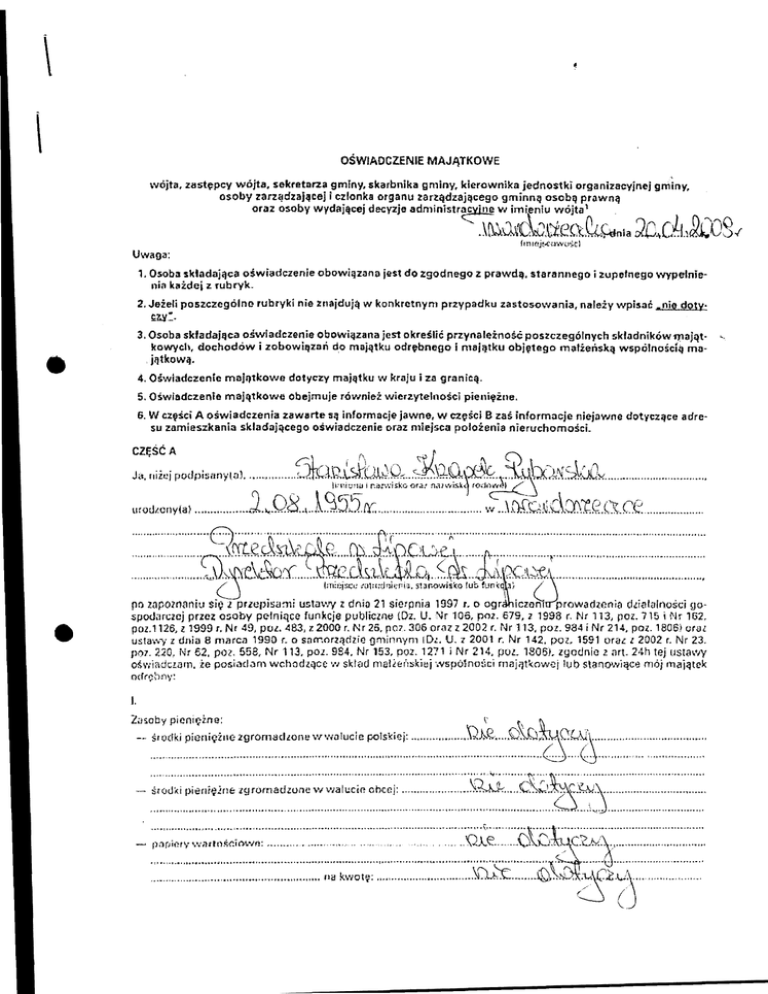 OŚWIADCZENIE MAJĄTKOWE
wójta, zastępcy wójta, sekretarza gminy, skarbnika gminy, kierownika jednostki organizacyjnej gminy,
osoby zarządzającej i członka organu zarządzającego gminną osobą prawną
oraz osoby wydającej decyzje administracyjne w imieniu wójta¹
dnia 20.04.2009r
(miejscowość)
Uwaga:
1. Osoba składająca oświadczenie obowiązana jest do zgodnego z prawdą, starannego i zupełnego wypełnie-
nia każdej z rubryk.
2. Jeżeli poszczególne rubryki nie znajdują w konkretnym przypadku zastosowania, należy wpisać „nie doty-
czy”.
3. Osoba składająca oświadczenie obowiązana jest określić przynależność poszczególnych składników mająt-
kowych, dochodów i zobowiązań do majątku odrębnego i majątku objętego małżeńską wspólnością ma-
jątkową.
4. Oświadczenie majątkowe dotyczy majątku w kraju i za granicą.
5. Oświadczenie majątkowe obejmuje również wierzytelności pieniężne.
6. W części A oświadczenia zawarte są informacje jawne, w części B zaś informacje niejawne dotyczące adre-
su zamieszkania składającego oświadczenie oraz miejsca położenia nieruchomości.
CZĘŚĆ A
Ja, niżej podpisany(a), Stanisława Knapek Rybarska
(imiona i nazwisko oraz nazwisko rodowe)
urodzony(a) 2.08.1955r w
Przedszkole w Lipowej
Dyrektor Przedszkola w Lipowej
(miejsce zatrudnienia, stanowisko lub funkcja)
po zapoznaniu się z przepisami ustawy z dnia 21 sierpnia 1997 r. o ograniczeniu prowadzenia działalności go-
spodarczej przez osoby pełniące funkcje publiczne (Dz. U. Nr 106, poz. 679, z 1998 r. Nr 113, poz. 715 i Nr 162,
poz.1126, z 1999 r. Nr 49, poz. 483, z 2000 r. Nr 26, poz. 306 oraz z 2002 r. Nr 113, poz. 984 i Nr 214, poz. 1806) oraz
ustawy z dnia 8 marca 1990 r. o samorządzie gminnym (Dz. U. z 2001 r. Nr 142, poz. 1591 oraz z 2002 r. Nr 23,
poz. 220, Nr 62, poz. 558, Nr 113, poz. 984, Nr 153, poz. 1271 i Nr 214, poz. 1806), zgodnie z art. 24h tej ustawy
oświadczam, że posiadam wchodzące w skład małżeńskiej wspólności majątkowej lub stanowiące mój majątek
odrębny:
I.
Zasoby pieniężne:
— środki pieniężne zgromadzone w walucie polskiej: nie dotyczy
— środki pieniężne zgromadzone w walucie obcej: nie dotyczy
— papiery wartościowe: nie dotyczy
na kwotę: nie dotyczy